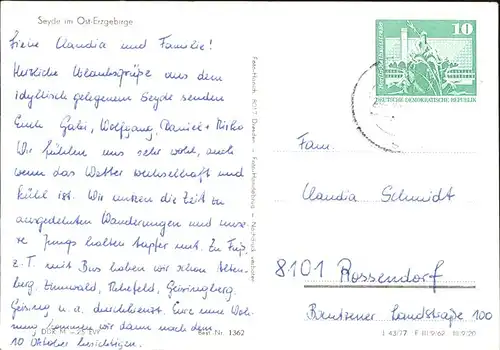 Seyde im Ost-Erzgebirge
Liebe Claudia und Familie!
Herzliche Urlaubsgrüße aus dem
idyllisch gelegenem Seyde senden
Euch Gabi, Wolfgang, Daniel + Mirko
Wir fühlen uns sehr wohl, auch
wenn das Wetter wechselhaft und
kühl ist. Wir nutzen die Zeit zu
ausgedehnten Wanderungen und unse-
re Jungs halten tapfer mit. Zu Fuß,
z.T. mit Bus haben wir schon Alten-
berg, Zinnwald, Rehefeld, Geisingberg,
Geising u. a. durchkreuzt. Eure neue Woh-
nung können wir dann nach dem
10 Oktober besichtigen.
Best.-Nr. 1362
10
DEUTSCHE DEMOKRATISCHE REPUBLIK
Fam.
Claudia Schmidt
8101 Rossendorf
Bautzener Landstraße 100
J 43/77 F III/9/62 III/9/20